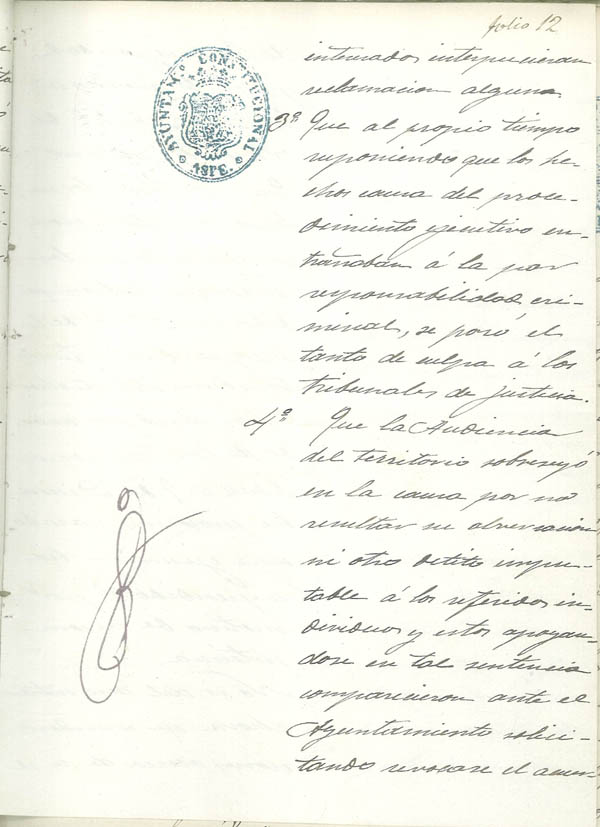 folio 12
AYUNTAM.º CONSTITUCIONAL
ASPE.
interesados interpusieran
reclamacion alguna
3º Que al propio tiempo
suponiendo que los he-
chos causa del proce-
dimiento ejecutivo en-
trañaban á la par
responsabilidad cri-
minal, se pasó el
tanto de culpa á los
tribunales de justicia.
4º Que la Audiencia
del territorio sobreseyó
en la causa por no
resultar
ni otro delito impu-
table á los referidos in-
dividuos y estos apoyan-
dose en tal sentencia
comparicieron ante el
Ayuntamiento solici-
tando revocase el acuer-